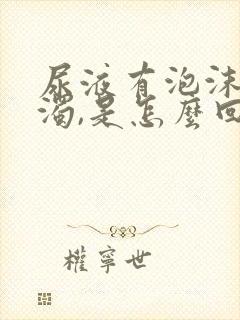 尿液有泡沫
濁,是怎麼回
權寧世